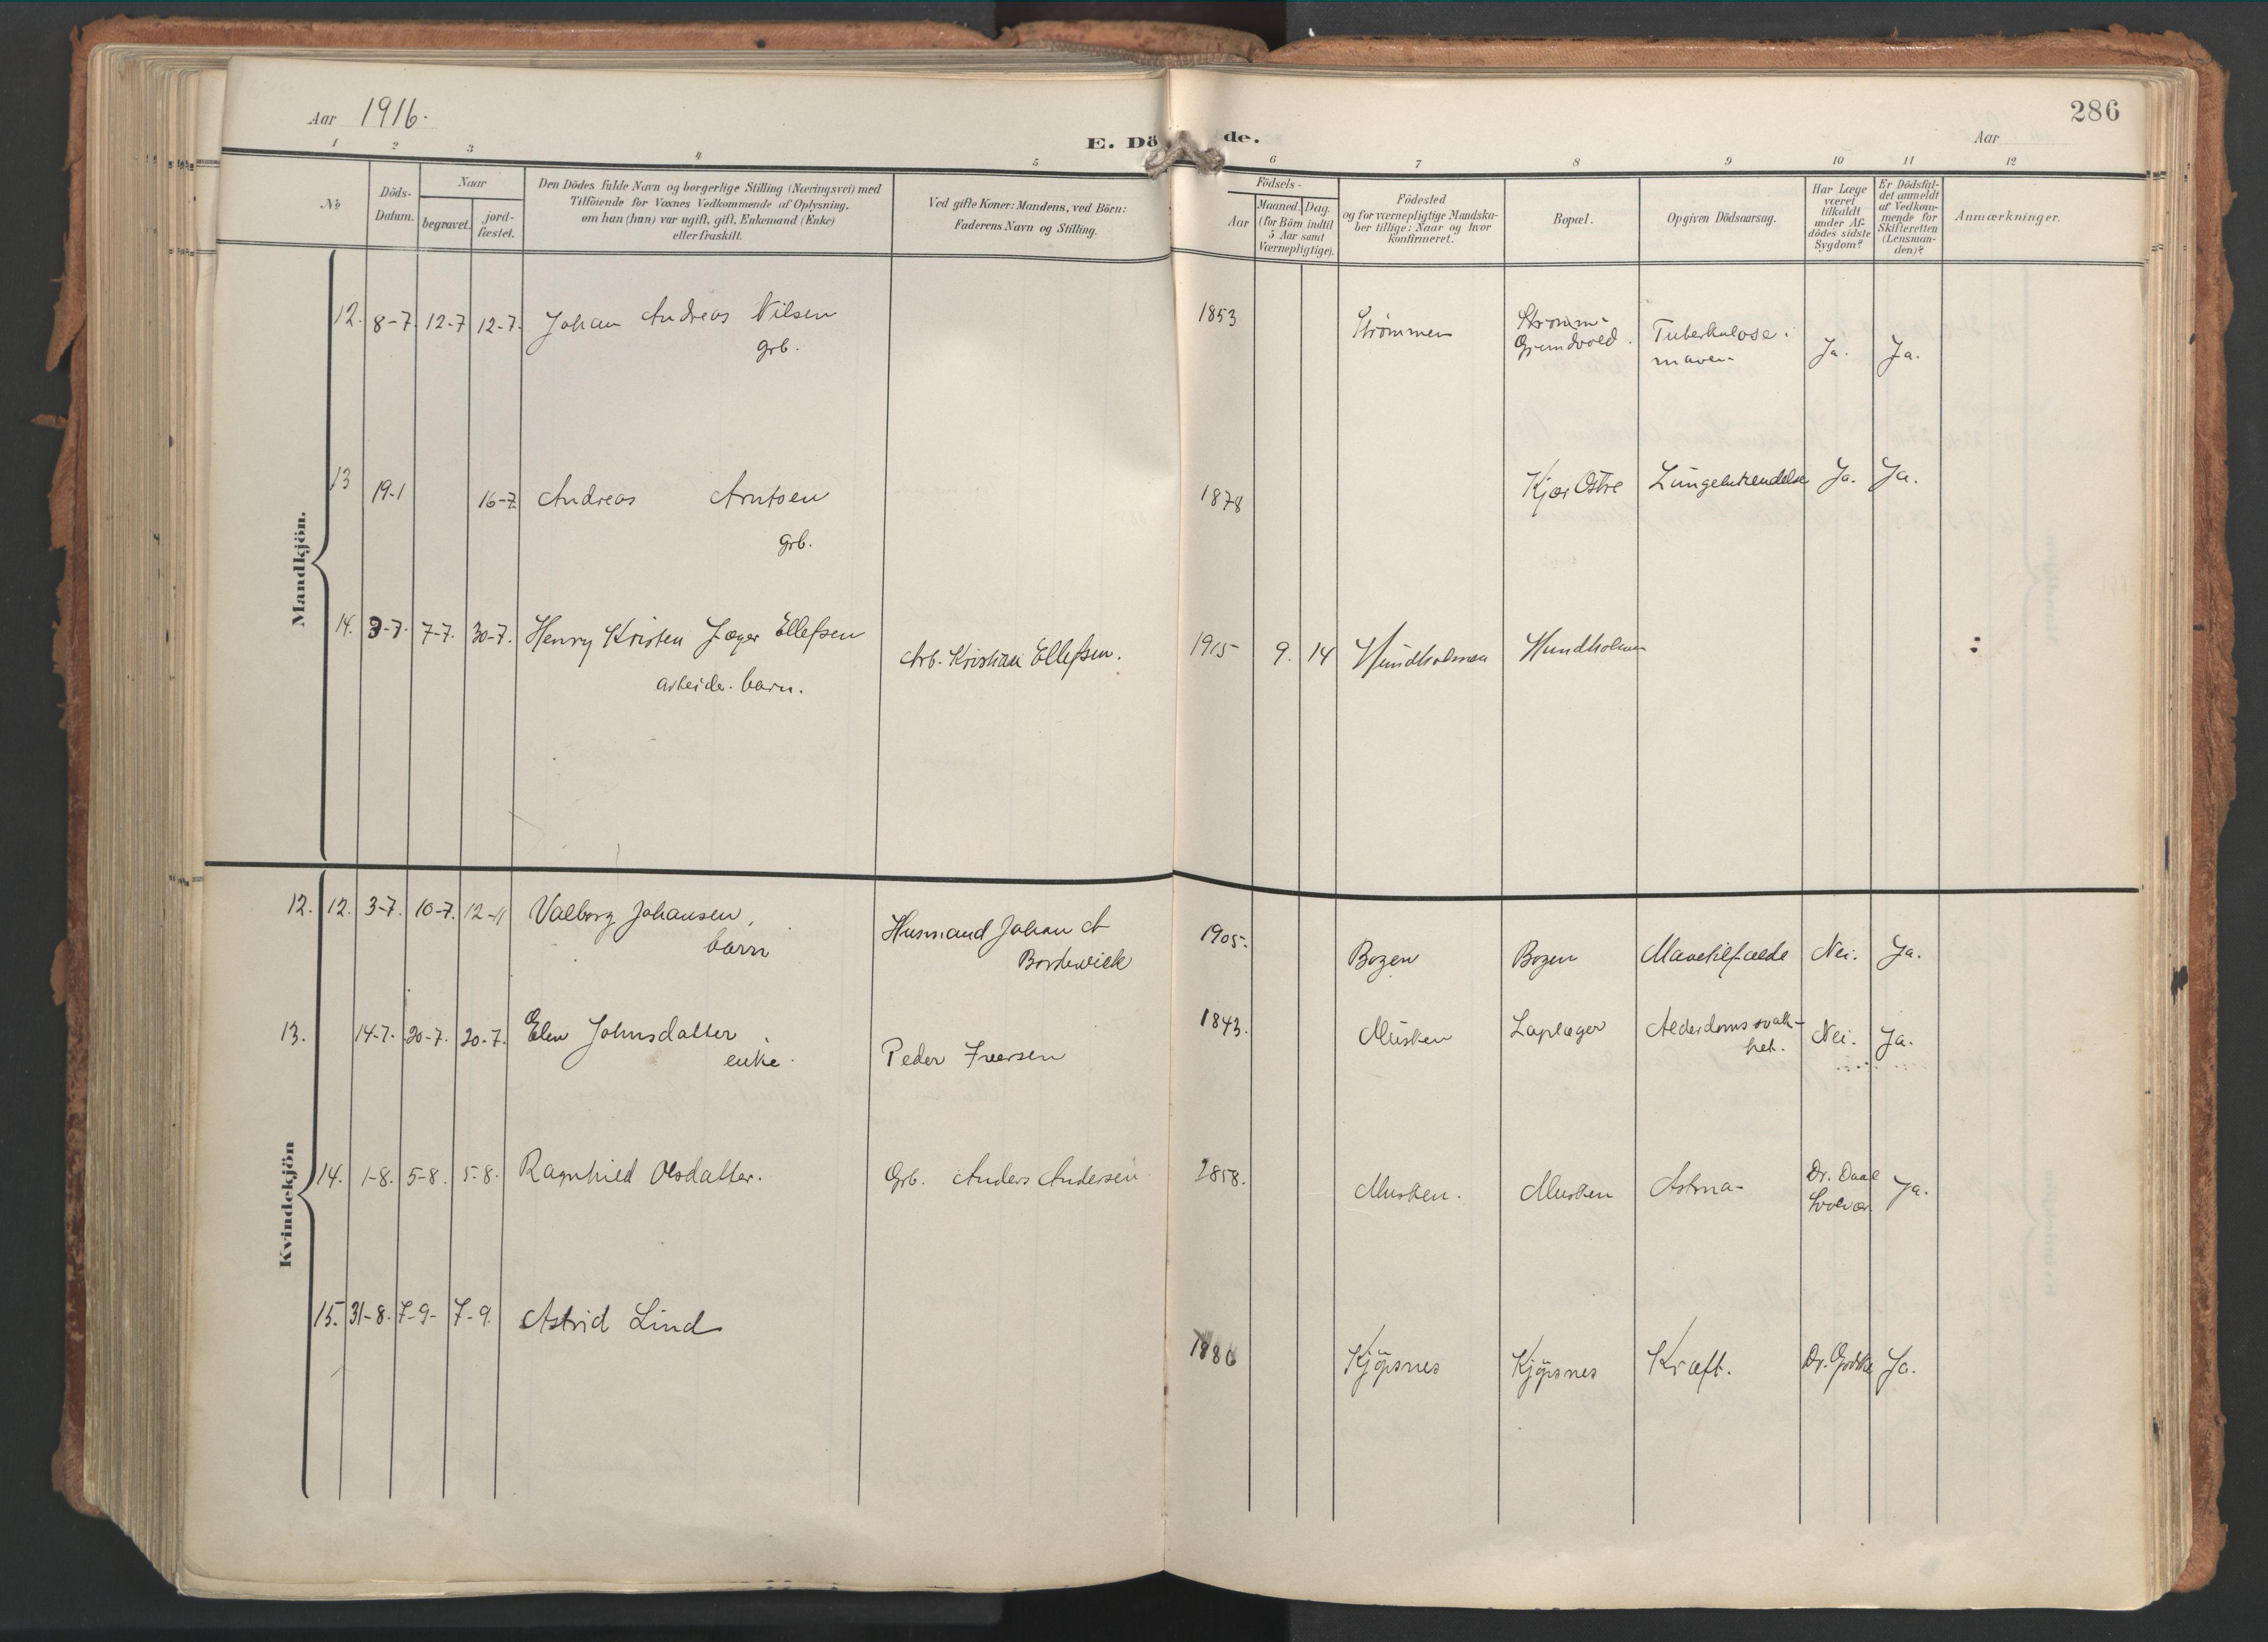 Aar 1916.
E. Döde.
286
Aar
1 2 3 4 5 6 7 8 9 10 11 12
№
Döds-
Datum.
Naar
begravet.
jord-
fæstet.
Den Dödes fulde Navn og borgerlige Stilling (Næringsvei) med
Tilföiende for Voxnes Vedkommende af Oplysning,
om han (hun) var ugift, gift, Enkemand (Enke)
eller fraskilt.
Ved gifte Koner: Mandens, ved Börn:
Faderens Navn og Stilling.
Födsels-
Aar
Maaned. Dag.
(for Börn indtil
5 Aar samt
Værnepligtige).
Födested
og for værnepligtige Mandska-
ber tillige: Naar og hvor
konfirmeret.
Bopæl.
Opgiven Dödsaarsag.
Har Læge
været
tilkaldt
under Af-
dödes sidste
Sygdom?
Er Dödsfal-
det anmeldt
af Vedkom-
mende for
Skifteretten
(Lensman-
den)?
Anmærkninger.
Mandkjön.
12. 8-7. 12-7 12-7. Johan Andreas Nilsen
grb.
1853 Strömmen
Strömm-
Grundvold.
Tuberkulose i
maven
Ja. Ja.
13 19-1 16-7 Andreas Arntsen
grb.
1878 Kjær Östre Lungebetendelse Ja. Ja.
14. 3-7. 7-7. 30-7. Henry Kristen Jæger Ellefsen
arbeider barn.
Arb. Kristian Ellefsen.
1915 9. 14 Hundholmen Hundholmen
Kvindekjön
12. 12. 3-7. 10-7. 12-11 Valborg Johansen,
barn
Husmand Johan A
Bordewick
1905. Bogen Bogen Mavetilfælde Nei. Ja.
13. 14-7. 20-7. 20-7. Elen Johnsdatter
enke.
Peder Iversen
1843. Musken Laplæger Alderdomssvak-
het.
Nei. Ja.
14. 1-8. 5-8. 5-8. Ragnhild Olsdatter.
Grb. Anders Andersen
1858. Musken. Musken Astma-
Dr. Daae
Svolvær
Ja.
15. 31-8. 7-9- 7-9. Astrid Lind
1886 Kjöpsnes Kjöpsnes Kræft. Dr. Ja.